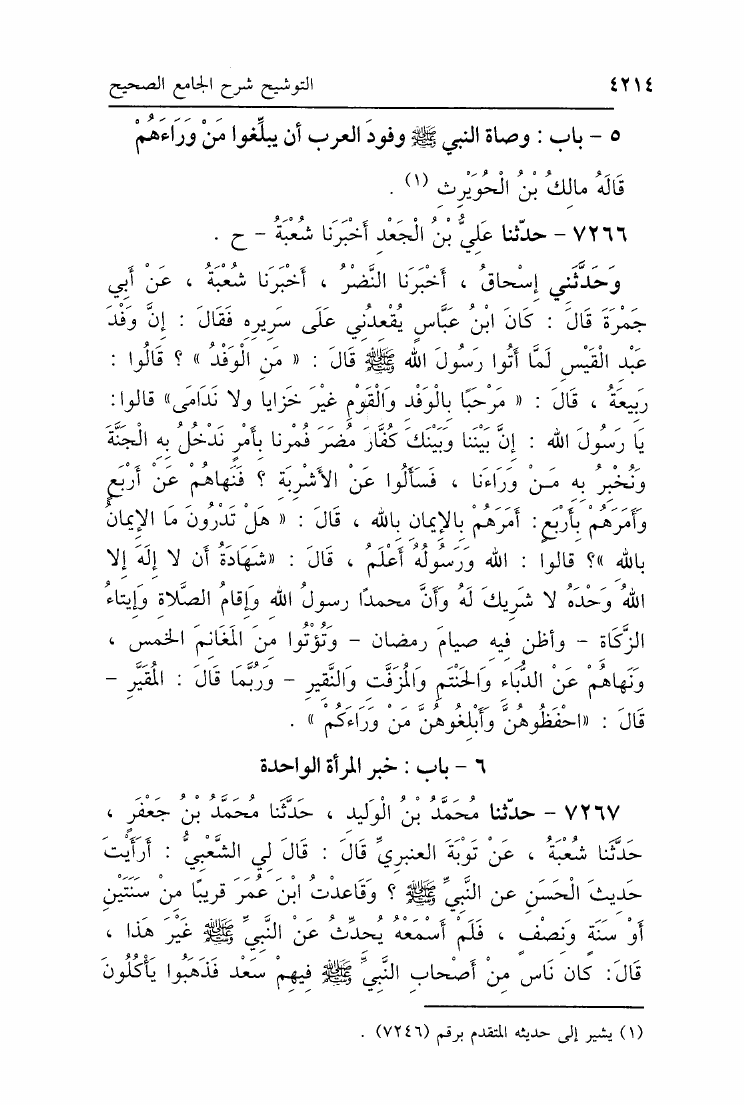 ٤٢١٤ التوشيح شرح الجامع الصحيح
٥ - باب : وصاة النبي ﷺ وفودَ العرب أن يبلِّغوا مَنْ وَرَاءَهُمْ
قَالَهُ مالِكُ بْنُ الْحُوَيْرِثِ (١) .
٧٢٦٦ - حدّثنا عَلِيُّ بْنُ الْجَعْدِ أَخْبَرَنَا شُعْبَةُ - ح .
وَحَدَّثَنِي إِسْحاقُ ، أَخْبَرَنَا النَّضْرُ ، أَخْبَرَنا شُعْبَةُ ، عَنْ أَبِي
جَمْرَةَ قَالَ : كَانَ ابْنُ عَبَّاسٍ يُقْعِدُنِي عَلَى سَرِيرِهِ فَقَالَ : إِنَّ وَفْدَ
عَبْدِ الْقَيْسِ لَمَّا أَتَوا رَسُولَ الله ﷺ قَالَ : « مَنِ الْوَفْدُ » ؟ قَالُوا :
رَبِيعَةُ ، قَالَ : « مَرْحَبًا بِالْوَفْدِ وَالْقَوْمِ غَيْرَ خَزايا ولا نَدَامَى» قالوا:
يَا رَسُولَ الله : إِنَّ بَيْنَنا وَبَيْنَكَ كُفَّارَ مُضَرَ فَمُرْنا بِأَمْرٍ نَدْخُلُ بِهِ الْجَنَّةَ
وَنُخْبِرُ بِهِ مَـنْ وَرَاءَنا ، فَسَأَلُوا عَنْ الأَشْرِبَةِ ؟ فَنَهاهُمْ عَنْ أَرْبَعٍ
وَأَمَرَهُمْ بِأَرْبَعٍ: أَمَرَهُمْ بِالإِيمانِ بِالله ، قَالَ : « هَلْ تَدْرُونَ مَا الإِيمَانُ
بالله »؟ قالوا : الله وَرَسُولُهُ أَعْلَمُ ، قَالَ : «شَهَادَةُ أن لا إِلَهَ إِلا
اللهُ وَحْدَهُ لا شَرِيكَ لَهُ وَأَنَّ محمدًا رسولُ الله وَإِقامُ الصَّلاة وَإِيتاءُ
الزَّكَاة - وأظن فيه صيامَ رمضان - وَتُؤْتُوا مِنَ المَغَانمَ الخمس ،
وَنَهاهُمْ عَنْ الدُّبَاءِ وَالحَنْتَمِ وَالمُزَفَّتِ وَالنَّقِيرِ - وَرُبَّمَا قَالَ : المُقَيَّرِ -
قَالَ : «احْفَظُوهُنَّ وَأَبْلِغُوهُنَّ مَنْ وَرَاءَكُمْ » .
٦ - باب : خبر المرأة الواحدة
٧٢٦٧ - حدّثنا مُحَمَّدُ بْنُ الْوَلِيدِ ، حَدَّثَنا مُحَمَّدُ بْنُ جَعْفَرٍ ،
حَدَّثَنا شُعْبَةُ ، عَنْ تَوْبَةَ العنبريِّ قَالَ : قَالَ لِي الشَّعْبِيُّ : أَرَأَيْتَ
حَدِيثَ الْحَسَنِ عن النَّبِيِّ ﷺ ؟ وَقَاعَدْتُ ابْنَ عُمَرَ قَرِيبًا مِنْ سَنَتَيْنِ
أَوْ سَنَةٍ وَنِصْفٍ ، فَلَمْ أَسْمَعْهُ يُحَدِّثُ عَنْ النَّبِيِّ ﷺ غَيْرَ هَذا ،
قَالَ: كَانَ نَاس مِنْ أَصْحابِ النَّبِيِّ ﷺ فِيهِمْ سَعْد فَذَهَبُوا يَأْكُلُونَ
(١) يشير إلى حديثه المتقدم برقم (٧٢٤٦) .